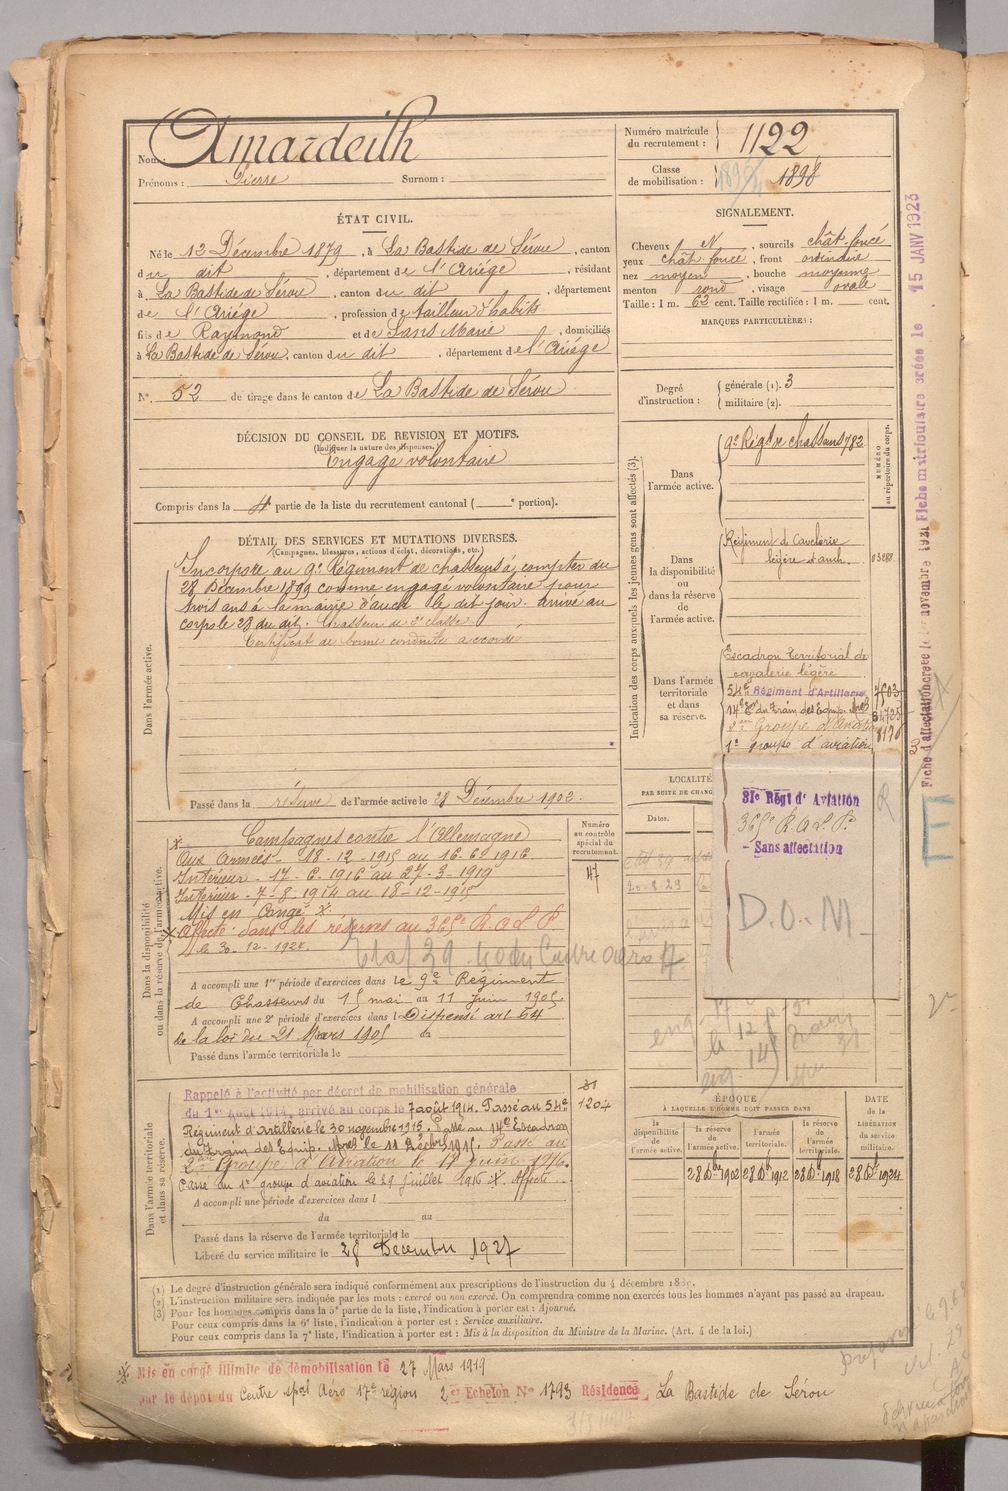 Nom : Amardeilh
Prénoms : Pierre Surnom :
Numéro matricule du recrutement : 1122
Classe de mobilisation : 1898
ÉTAT CIVIL.
Né le 12 Décembre 1879, à La Bastide de Sérou, canton
du dit, département de l'Ariége, résidant
à La Bastide de Sérou, canton du dit, département
de l'Ariége, profession de tailleur d'habits
fils de Raymond et de Sans Marie, domiciliés
à La Bastide de Sérou, canton du dit, département de l'Ariége
N° 52 de tirage dans le canton de La Bastide de Sérou
SIGNALEMENT.
Cheveux N, sourcils chât-foncé
yeux chât-foncé, front ordinaire
nez moyen, bouche moyenne
menton rond, visage ovale
Taille : 1 m. 62 cent. Taille rectifiée : 1 m. cent.
MARQUES PARTICULIÈRES :
Degré d'instruction : générale (1). 3
militaire (2).
DÉCISION DU CONSEIL DE REVISION ET MOTIFS.
(Indiquer la nature des dispenses.)
Engagé volontaire
Compris dans la 4e partie de la liste du recrutement cantonal ( e portion).
DÉTAIL DES SERVICES ET MUTATIONS DIVERSES.
(Campagnes, blessures, actions d'éclat, décorations, etc.)
Dans l'armée active.
Incorporé au 9e Régiment de chasseurs à compter du
28 Décembre 1899 comme engagé volontaire pour
trois ans à la mairie d'auch le dit jour. arrivé au
corps le 28 du dit. Chasseur de 2e classe.
Certificat de bonne conduite accordé
Passé dans la réserve de l'armée active le 28 Décembre 1902.
Indication des corps auxquels les jeunes gens sont affectés (3).
NUMÉRO au répertoire du corps.
Dans l'armée active.
9e Régt de chasseurs 782
Dans la disponibilité ou dans la réserve de l'armée active.
Régiment de Cavalerie
légère d'auch. 03288
Dans l'armée territoriale et dans sa réserve.
Escadron territorial de
cavalerie légère
54e Régiment d'Artillerie 7503
14e Eon du Train des Equip. Mres
2me Groupe d'Aviation 8176
1er groupe d'aviation
31e Régt d'Aviation
365e R.A.L.P.
- Sans affectation
D.O.M
LOCALITÉ
PAR SUITE DE CHANG
Dates.
Dans la disponibilité ou dans la réserve de l'armée active.
Numéro au contrôle spécial du recrutement.
117
Campagnes contre l'Allemagne
Aux Armées - 18-12-1915 au 16-6-1916.
Intérieur - 17-6-1916 au 27-3-1919
Intérieur - 7-8-1914 au 18-12-1915
Mis en Congé X
X Affecté dans les réserves au 365e R.A.L.P
le 30-12-1928.
A accompli une 1re période d'exercices dans le 9e Régiment
de Chasseurs du 15 mai au 11 Juin 1905.
A accompli une 2e période d'exercices dans l Dispensé art 64
de la loi du 21 Mars 1905 au
Passé dans l'armée territoriale le
Dans l'armée territoriale et dans sa réserve.
Rappelé à l'activité par décret de mobilisation générale
du 1er Août 1914, arrivé au corps le 7 août 1914. Passé au 54e
Régiment d'Artillerie le 30 novembre 1915. Passé au 14e Escadron
du Train des Equip. Mres le 11 Décbre 1915. Passé au
2me Groupe d'Aviation le 18 juin 1916.
Passé au 1er groupe d'aviation le 29 Juillet 1916 X. Affecté
1204
A accompli une période d'exercices dans l
du au
Passé dans la réserve de l'armée territoriale le
Libéré du service militaire le 28 Décembre 1927
ÉPOQUE
À LAQUELLE L'HOMME DOIT PASSER DANS
la disponibilité de l'armée active.
la réserve de l'armée active.
l'armée territoriale.
la réserve de l'armée territoriale.
DATE de la LIBÉRATION du service militaire.
28 Dbre 1902 28 Dbre 1912 28 Dbre 1918 28 Dbre 1924
(1) Le degré d'instruction générale sera indiqué conformément aux prescriptions de l'instruction du 4 décembre 1889.
(2) L'instruction militaire sera indiquée par les mots : exercé ou non exercé. On comprendra comme non exercés tous les hommes n'ayant pas passé au drapeau.
(3) Pour les hommes compris dans la 5e partie de la liste, l'indication à porter est : Ajourné.
Pour ceux compris dans la 6e liste, l'indication à porter est : Service auxiliaire.
Pour ceux compris dans la 7e liste, l'indication à porter est : Mis à la disposition du Ministre de la Marine. (Art. 4 de la loi.)
X Mis en congé illimité de démobilisation le 27 Mars 1919
par le dépôt du Centre spal Aéro 17e région 2e Echelon N° 1793 Résidence La Bastide de Sérou
Fiche matriculaire créée le 15 JANV 1923
Fiche d'affectation créée le novembre 1931